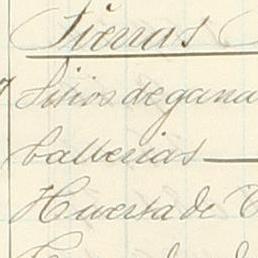 Tierras
Sitios de gana
Caballerias
Huerta de